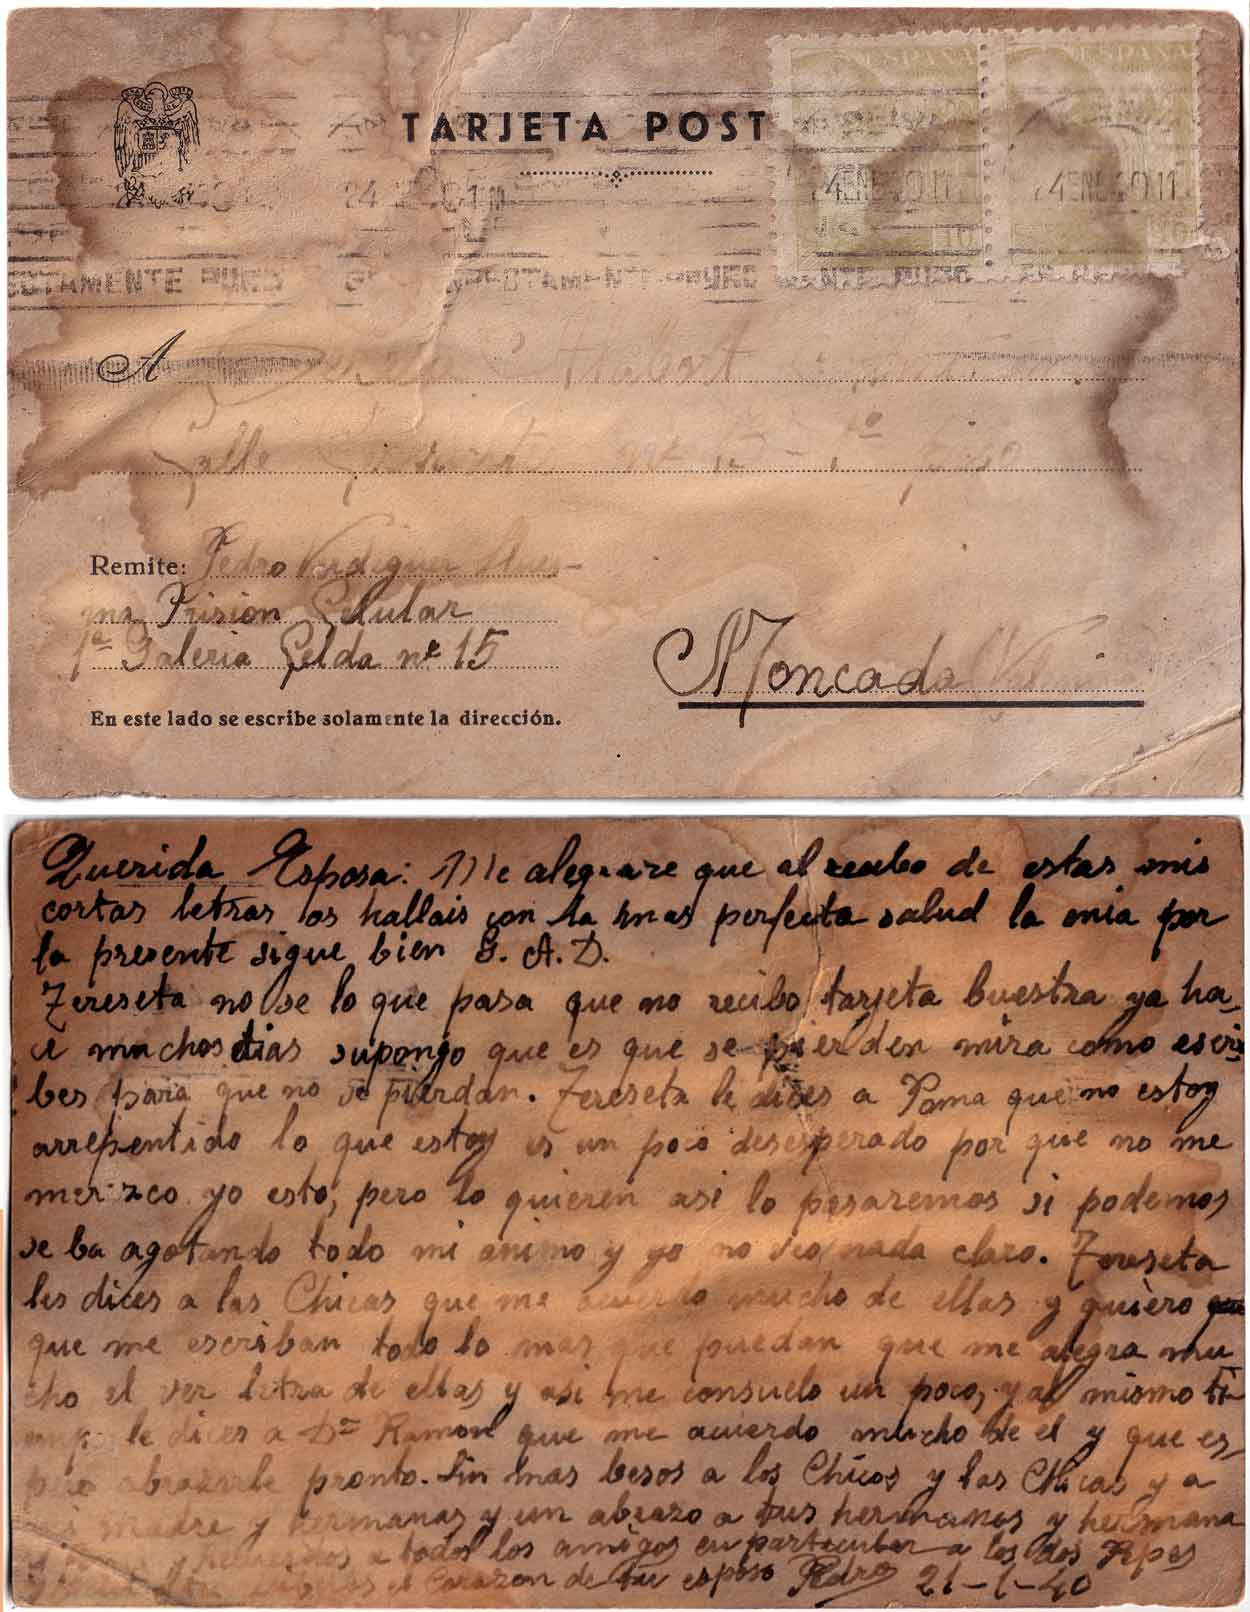 TARJETA POST
ESPAÑA ESPAÑA
4 ENE 40 11 4 ENE 40 11
CTAMENTE PURO
A
Calle nº 13 - 1º piso
Remite: Pedro Verdiguer Llues-
ma Prisión Celular
1ª Galeria Celda nº 15
Moncada
En este lado se escribe solamente la dirección.
Querida Esposa: Me alegrare que al recibo de estas mis
cortas letras os hallais con la mas perfecta salud la mia por
la presente sigue bien G. A. D.
Tereseta no se lo que pasa que no recibo tarjeta buestra ya ha-
ce muchos dias supongo que es que se pierden mira como escri-
bes para que no se pierdan. Tereseta le dices a Pama que no estoy
arrepentido lo que estoy es un poco desesperado por que no me
merezco yo esto, pero lo quieren asi lo pasaremos si podemos
se ba agotando todo mi animo y yo no veo nada claro. Tereseta
les dices a las Chicas que me acuerdo mucho de ellas y quiero
que me escriban todo lo mas que puedan que me alegra mu
cho el ver letra de ellas y asi me consuelo un poco, y al mismo ti-
empo le dices a Dn Ramon que me acuerdo mucho de el y que es-
pero abrazarle pronto. Sin mas besos a los Chicos y las Chicas y a
mi madre y hermanas y un abrazo a tus hermanos y hermana
y recuerdos a todos los amigos en particular a los dos Pepes
el corazon de tu esposo Pedro 21-1-40